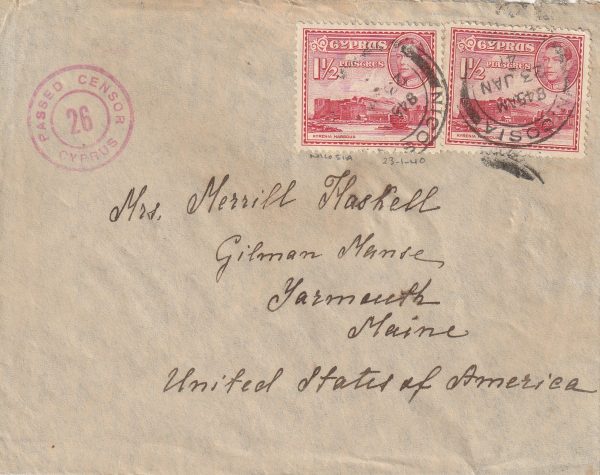 PASSED CENSOR
26
CYPRUS
CYPRUS
1½ PIASTRES
KYRENIA HARBOUR
CYPRUS
1½ PIASTRES
KYRENIA HARBOUR
NICOS
945
NICOSIA
945AM
23 JAN
NICOSIA
23-1-40
Mrs. Merrill Haskell
Gilman Manse
Yarmouth
Maine
United States of America